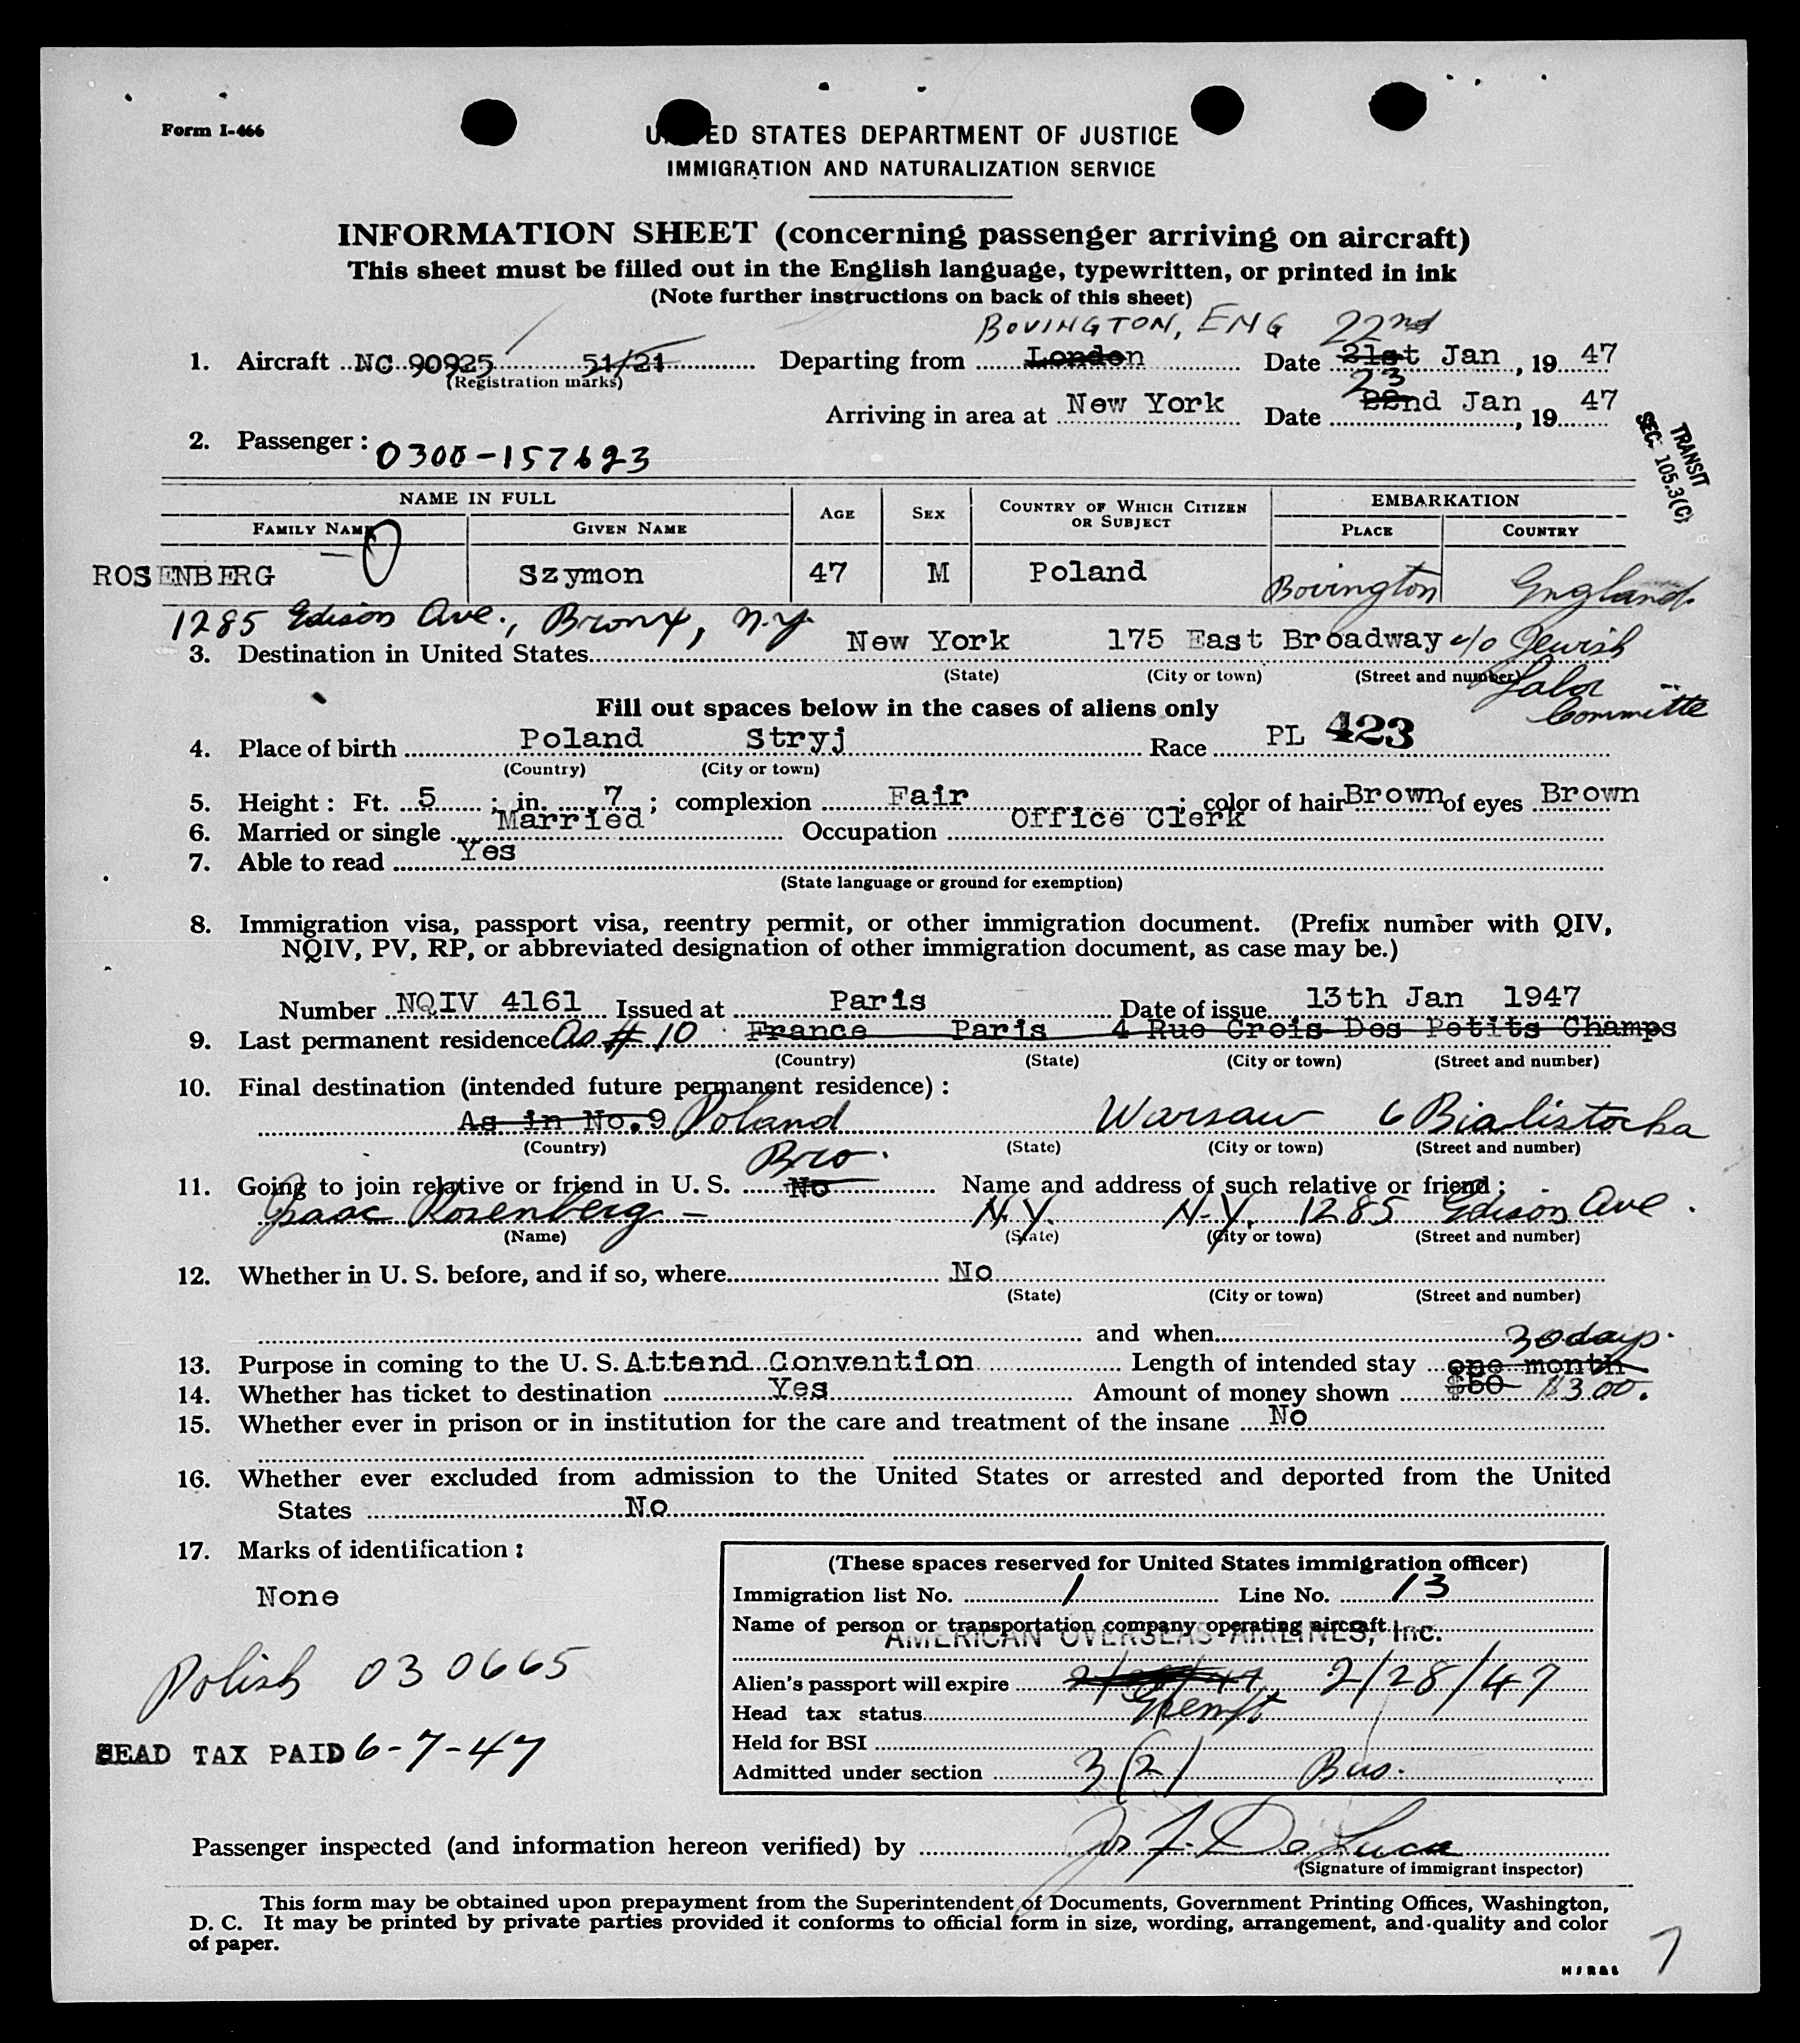 Form I-466
UNITED STATES DEPARTMENT OF JUSTICE
IMMIGRATION AND NATURALIZATION SERVICE
INFORMATION SHEET (concerning passenger arriving on aircraft)
This sheet must be filled out in the English language, typewritten, or printed in ink
(Note further instructions on back of this sheet)
BOVINGTON, ENG 22nd
1. Aircraft NC 90925 51/21 Departing from London Date 21st Jan, 19 47
(Registration marks)
23
Arriving in area at New York Date 22nd Jan, 19 47
TRANSIT
SEC. 105.3(C)
2. Passenger: 0300-157623
NAME IN FULL AGE SEX COUNTRY OF WHICH CITIZEN OR SUBJECT EMBARKATION
FAMILY NAME GIVEN NAME PLACE COUNTRY
ROSENBERG Szymon 47 M Poland Bovington England
1285 Edison Ave., Bronx, N.Y.
3. Destination in United States New York 175 East Broadway c/o Jewish
(State) (City or town) (Street and number) Labor
Committe
Fill out spaces below in the cases of aliens only
4. Place of birth Poland Stryj Race PL 423
(Country) (City or town)
5. Height: Ft. 5; in. 7; complexion Fair; color of hair Brown of eyes Brown
6. Married or single Married Occupation Office Clerk
7. Able to read Yes
(State language or ground for exemption)
8. Immigration visa, passport visa, reentry permit, or other immigration document. (Prefix number with QIV,
NQIV, PV, RP, or abbreviated designation of other immigration document, as case may be.)
Number NQIV 4161 Issued at Paris Date of issue 13th Jan 1947
9. Last permanent residence As # 10 France Paris 4 Rue Crois Des Petits Champs
(Country) (State) (City or town) (Street and number)
10. Final destination (intended future permanent residence):
As in No. 9 Poland Warsaw 6 Bialistocka
(Country) (State) (City or town) (Street and number)
Bro.
11. Going to join relative or friend in U. S. No Name and address of such relative or friend:
Isaac Rosenberg - N.Y. N.Y. 1285 Edison Ave.
(Name) (State) (City or town) (Street and number)
12. Whether in U. S. before, and if so, where No
(State) (City or town) (Street and number)
and when
30 days.
13. Purpose in coming to the U. S. Attend Convention Length of intended stay one month
14. Whether has ticket to destination Yes Amount of money shown $50 $300.
15. Whether ever in prison or in institution for the care and treatment of the insane No
16. Whether ever excluded from admission to the United States or arrested and deported from the United
States No
17. Marks of identification:
None
(These spaces reserved for United States immigration officer)
Immigration list No. 1 Line No. 13
Name of person or transportation company operating aircraft
AMERICAN OVERSEAS AIRLINES, Inc.
Polish 030665
Alien's passport will expire 2/28/47
Head tax status Exempt
Held for BSI
HEAD TAX PAID 6-7-47
Admitted under section 3(2) Bus.
Passenger inspected (and information hereon verified) by Jos F. De Luca
(Signature of immigrant inspector)
This form may be obtained upon prepayment from the Superintendent of Documents, Government Printing Offices, Washington,
D. C. It may be printed by private parties provided it conforms to official form in size, wording, arrangement, and quality and color
of paper.
7